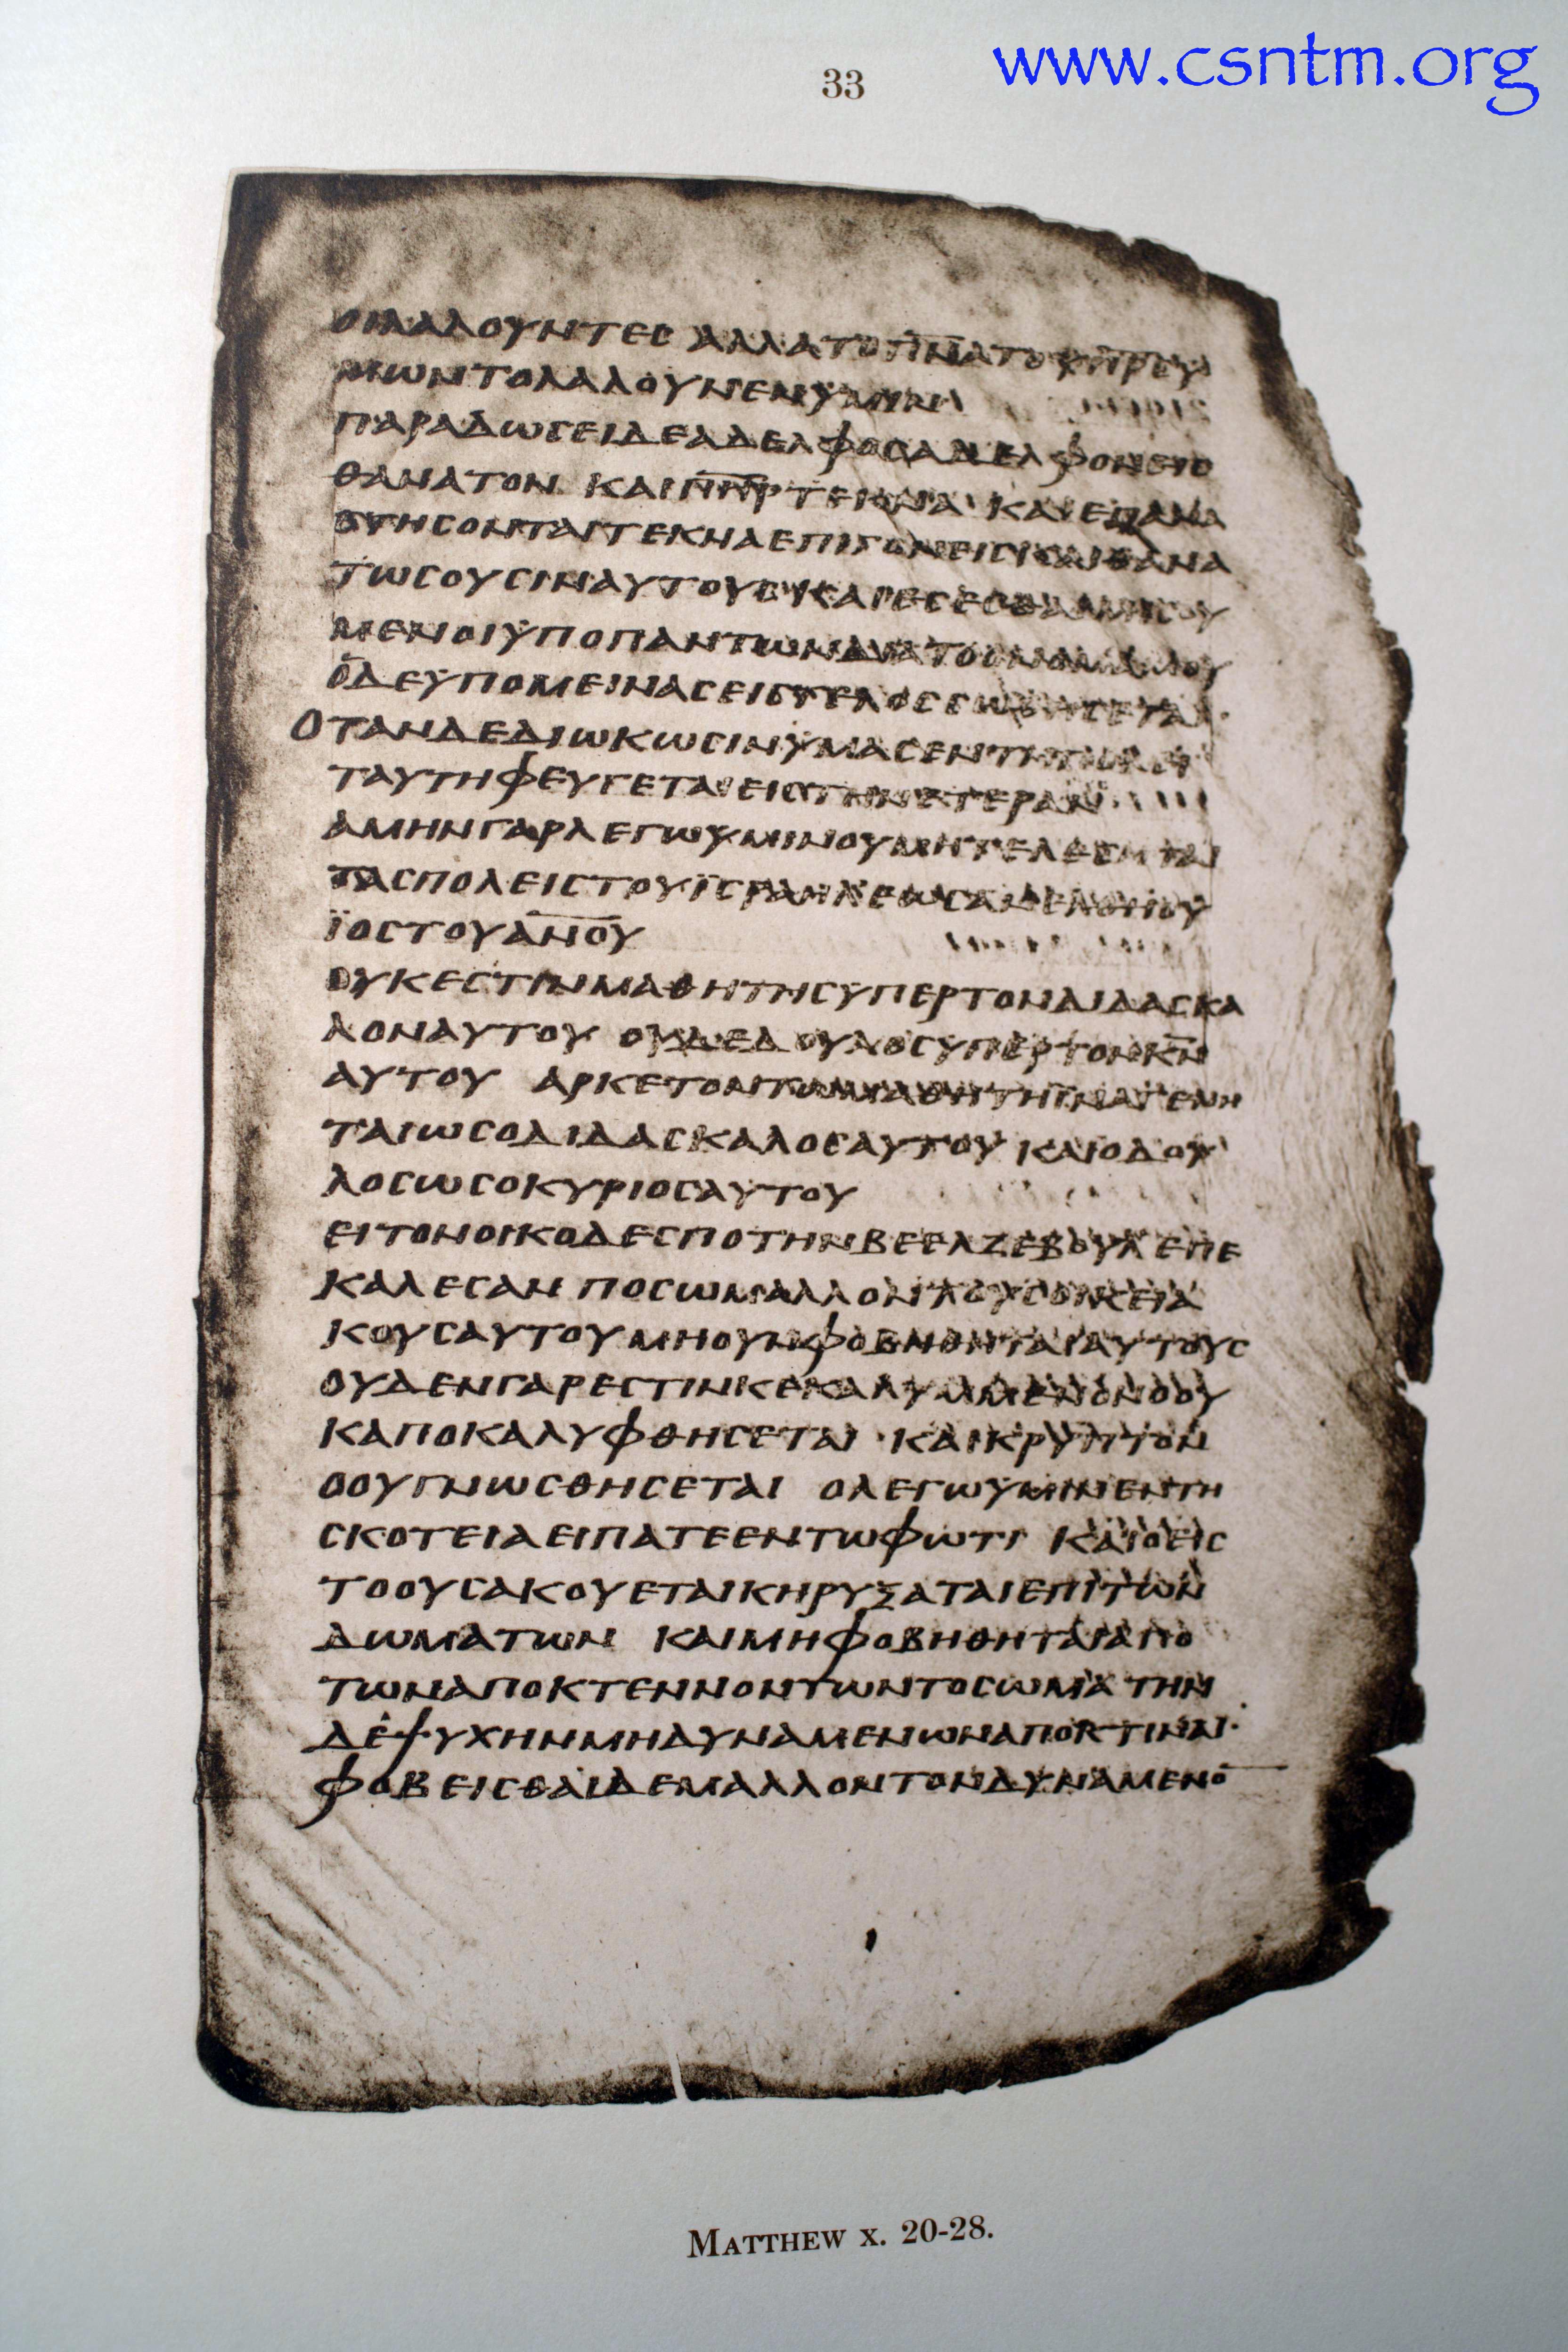 33
www.csntm.org
ΟΙΛΑΛΟΥΝΤΕС ΑΛΛΑΤΟΠ̅Ν̅ΑΤΟΥΠ̅Ρ̅СΥ
ΜΩΝΤΟΛΑΛΟΥΝΕΝΥΜΙΝ
ΠΑΡΑΔΩСΕΙΔΕΑΔΕΛΦΟСΑΔΕΛΦΟΝΕΙС
ΘΑΝΑΤΟΝ ΚΑΙΠ̅Η̅Ρ̅ΤΕΚΝΑ· ΚΑΙΕΠΑΝΑ
СΤΗСΟΝΤΑΙΤΕΚΝΑΕΠΙΓΟΝΕΙСΚΑΙΘΑΝΑ
ΤΩСΟΥСΙΝΑΥΤΟΥС ΚΑΙΕСΕСΘΑΙΜΙСΟΥ
ΜΕΝΟΙΥΠΟΠΑΝΤΩΝΔΙΑΤΟΟΝΟΜΑΜΟΥ
ΟΔΕΥΠΟΜΕΙΝΑСΕΙСΤΕΛΟССΩΘΗСΕΤΑΙ·
ΟΤΑΝΔΕΔΙΩΚΩСΙΝΥΜΑСΕΝΤΗΠΟΛΕΙ
ΤΑΥΤΗΦΕΥΓΕΤΑΙΕΙСΤΗΝΕΤΕΡΑΝ
ΑΜΗΝΓΑΡΛΕΓΩΥΜΙΝΟΥΜΗΤΕΛΕСΗΤΑΙ
ΤΑСΠΟΛΕΙСΤΟΥΪСΡΑΗΛΕΩСΑΝΕΛΘΗΟΥ
ΪΟСΤΟΥΑ̅Ν̅Ο̅Υ̅
ΟΥΚΕСΤΙΝΜΑΘΗΤΗСΥΠΕΡΤΟΝΔΙΔΑСΚΑ
ΛΟΝΑΥΤΟΥ ΟΥΔΕΔΟΥΛΟСΥΠΕΡΤΟΝΚ̅Ν̅
ΑΥΤΟΥ ΑΡΚΕΤΟΝΤΩΜΑΘΗΤΗΪΝΑΓΕΝΗ
ΤΑΙΩСΟΔΙΔΑСΚΑΛΟСΑΥΤΟΥ ΚΑΙΟΔΟΥ
ΛΟСΩСΟΚΥΡΙΟСΑΥΤΟΥ
ΕΙΤΟΝΟΙΚΟΔΕСΠΟΤΗΝΒΕΕΛΖΕΒΟΥΛΕΠΕ
ΚΑΛΕСΑΝ ΠΟСΩΜΑΛΛΟΝΤΟΥСΟΙΚΕΙΑ
ΚΟΥСΑΥΤΟΥΜΗΟΥΝΦΟΒΗΘΗΤΑΙΑΥΤΟΥС
ΟΥΔΕΝΓΑΡΕСΤΙΝΚΕΚΑΛΥΜΜΕΝΟΝΟΟΥ
ΚΑΠΟΚΑΛΥΦΘΗСΕΤΑΙ · ΚΑΙΚΡΥΠΤΟΝ
ΟΟΥΓΝΩСΘΗСΕΤΑΙ ΟΛΕΓΩΥΜΙΝΕΝΤΗ
СΚΟΤΕΙΑΕΙΠΑΤΕΕΝΤΩΦΩΤΙ ΚΑΙΟΕΙС
ΤΟΟΥСΑΚΟΥΕΤΑΙΚΗΡΥΞΑΤΑΙΕΠΙΤΩΝ
ΔΩΜΑΤΩΝ ΚΑΙΜΗΦΟΒΗΘΗΤΑΙΑΠΟ
ΤΩΝΑΠΟΚΤΕΝΝΟΝΤΩΝΤΟСΩΜΑΤΗΝ
ΔΕΨΥΧΗΝΜΗΔΥΝΑΜΕΝΩΝΑΠΟΚΤΙΝΑΙ·
ΦΟΒΕΙСΘΑΙΔΕΜΑΛΛΟΝΤΟΝΔΥΝΑΜΕΝΟ̅
MATTHEW X. 20-28.